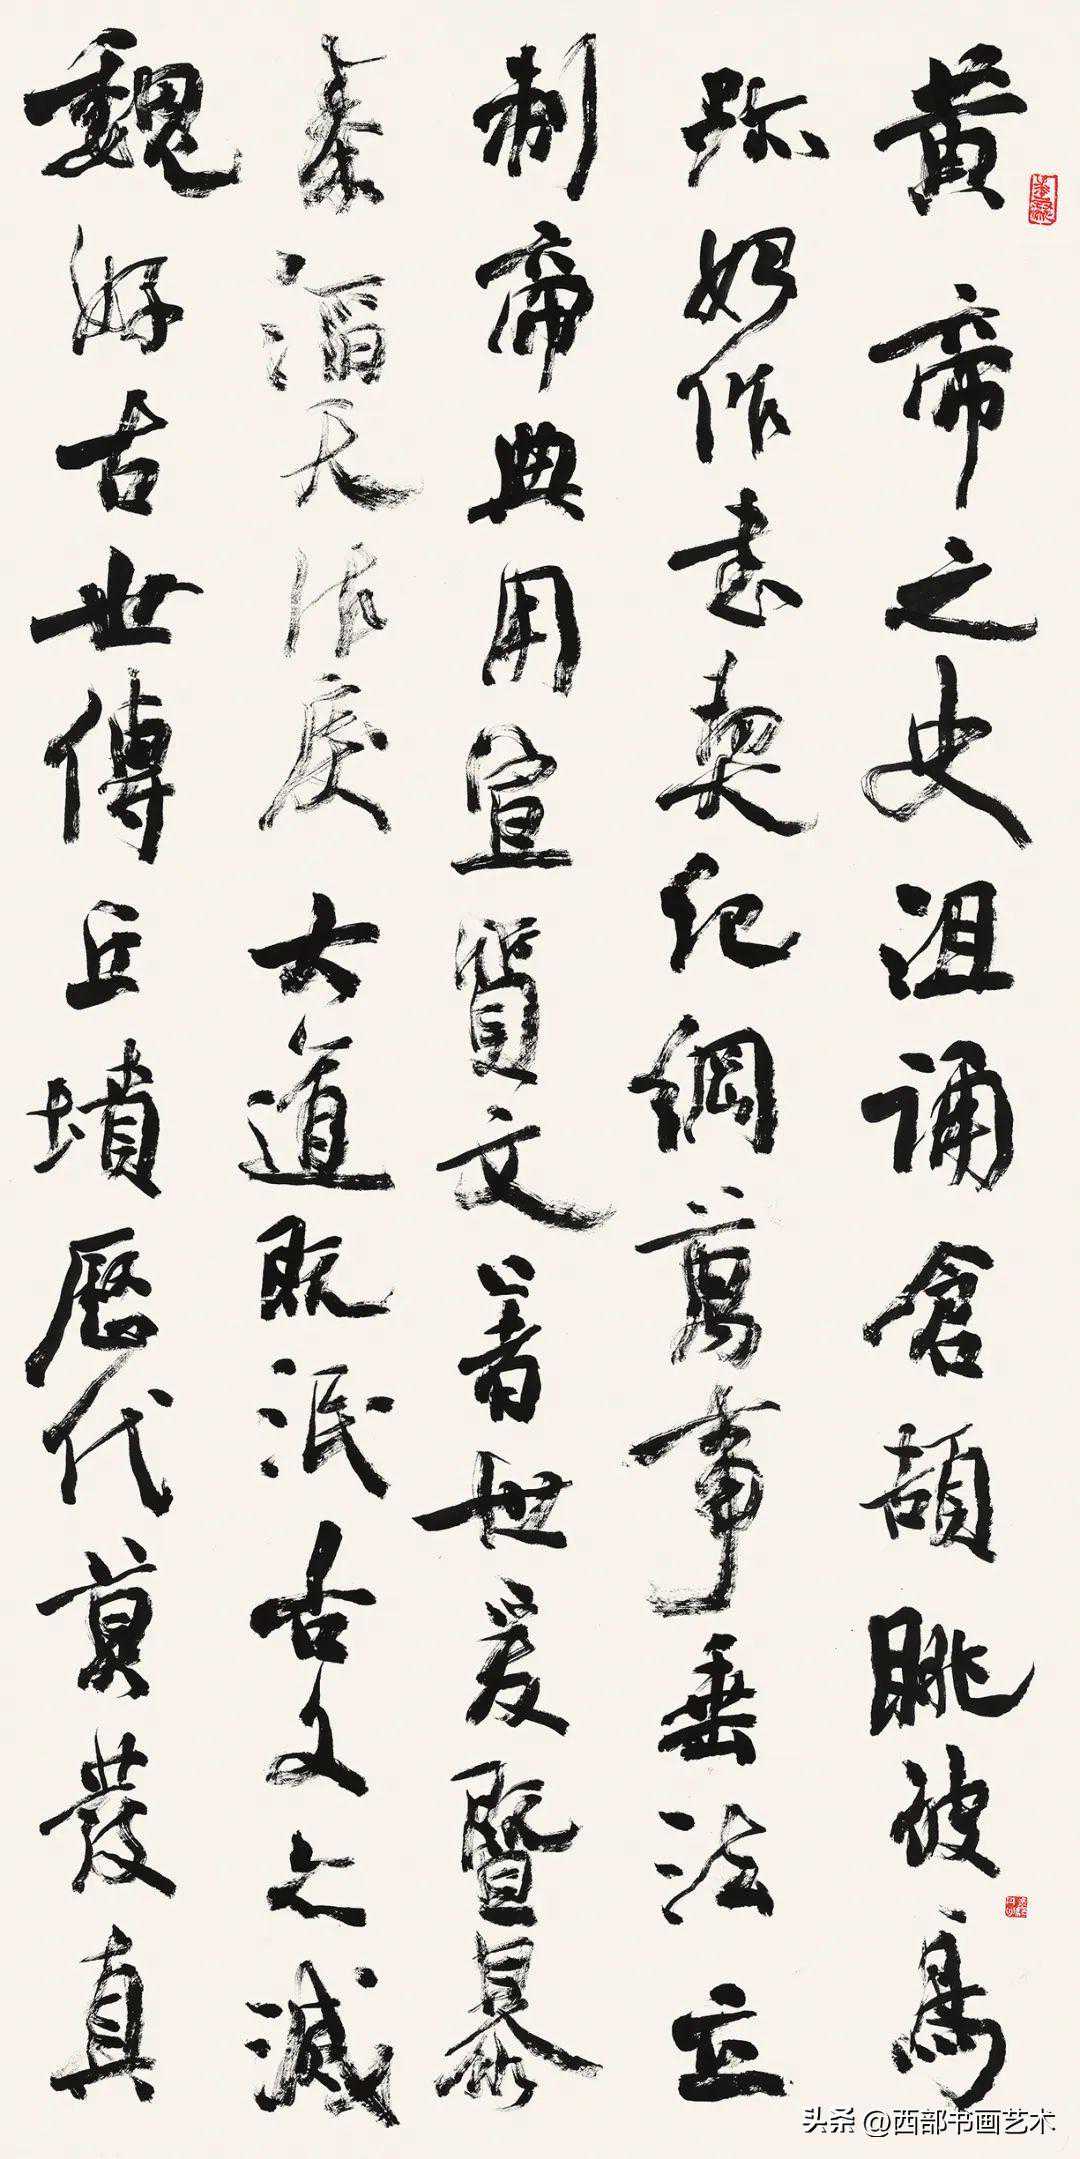 黄帝之史沮誦倉頡眺彼鳥
跡始作書契紀綱萬事垂法立
制帝典用宣質文著世爰暨暴
秦滔天作戾大道既泯古文亦滅
魏好古世傳丘墳歷代莫發真
头条 @西部书画艺术